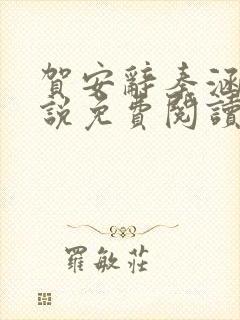 賀安辭秦涵
說免費閱讀
羅敏莊